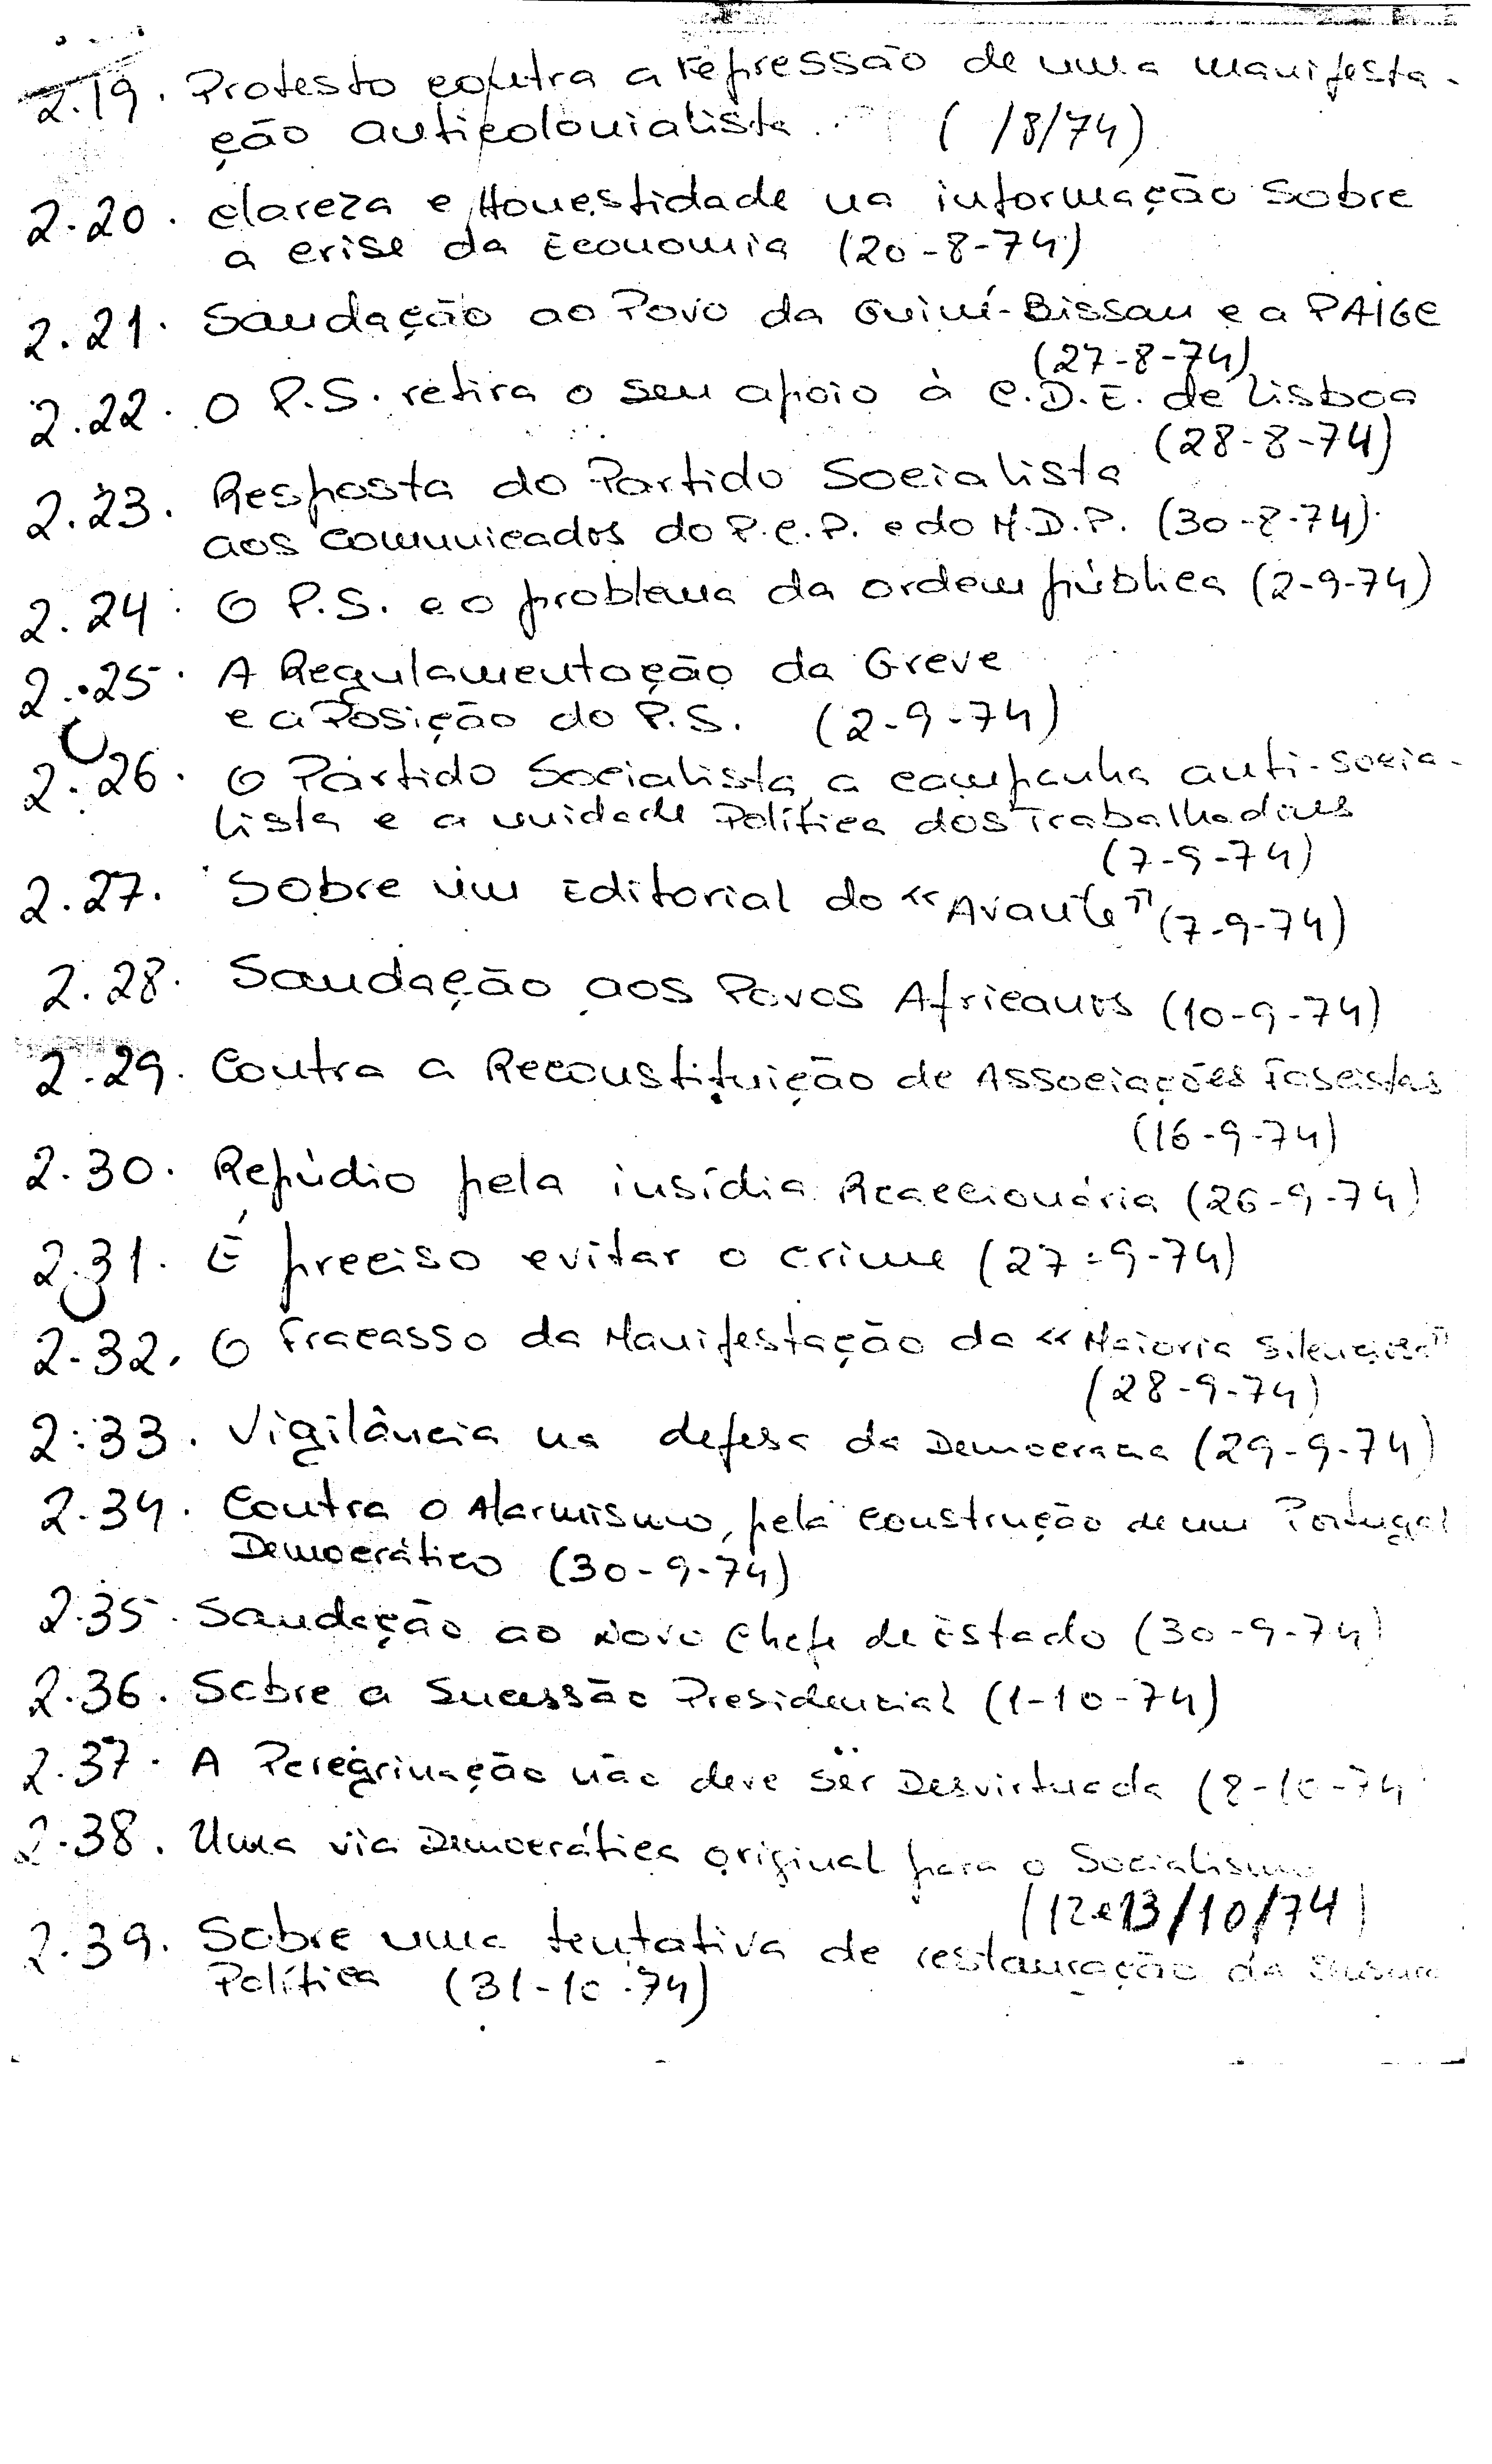 2.19. Protesto contra a repressão de uma manifesta-
ção anticolonialista ( /8/74)
2.20. Clareza e Honestidade na informação sobre
a crise da Economia (20-8-74)
2.21. Saudação ao Povo da Guiné-Bissau e a PAIGC
(27-8-74)
2.22. O P.S. retira o seu apoio à C.D.E. de Lisboa
(28-8-74)
2.23. Resposta do Partido Socialista
aos comunicados do P.C.P. e do M.D.P. (30-8-74)
2.24. O P.S. e o problema da ordem pública (2-9-74)
2.25. A Regulamentação da Greve
e a Posição do P.S. (2-9-74)
2.26. O Partido Socialista, a campanha anti-socia-
lista e a unidade Política dos Trabalhadores
(7-9-74)
2.27. Sobre um Editorial do «Avante» (7-9-74)
2.28. Saudação aos Povos Africanos (10-9-74)
2.29. Contra a Reconstituição de Associações Fascistas
(16-9-74)
2.30. Repúdio pela insídia Reaccionária (26-9-74)
2.31. É preciso evitar o crime (27-9-74)
2.32. O Fracasso da Manifestação da «Maioria Silenciosa»
(28-9-74)
2.33. Vigilância na defesa da Democracia (29-9-74)
2.34. Contra o Alarmismo, pela construção de um Portugal
Democrático (30-9-74)
2.35. Saudação ao Novo Chefe de Estado (30-9-74)
2.36. Sobre a Sucessão Presidencial (1-10-74)
2.37. A Peregrinação não deve ser Desvirtuada (8-10-74
2.38. Uma via Democrática original para o Socialismo
(12 e 13/10/74)
2.39. Sobre uma tentativa de restauração da Censura
Política (31-10-74)